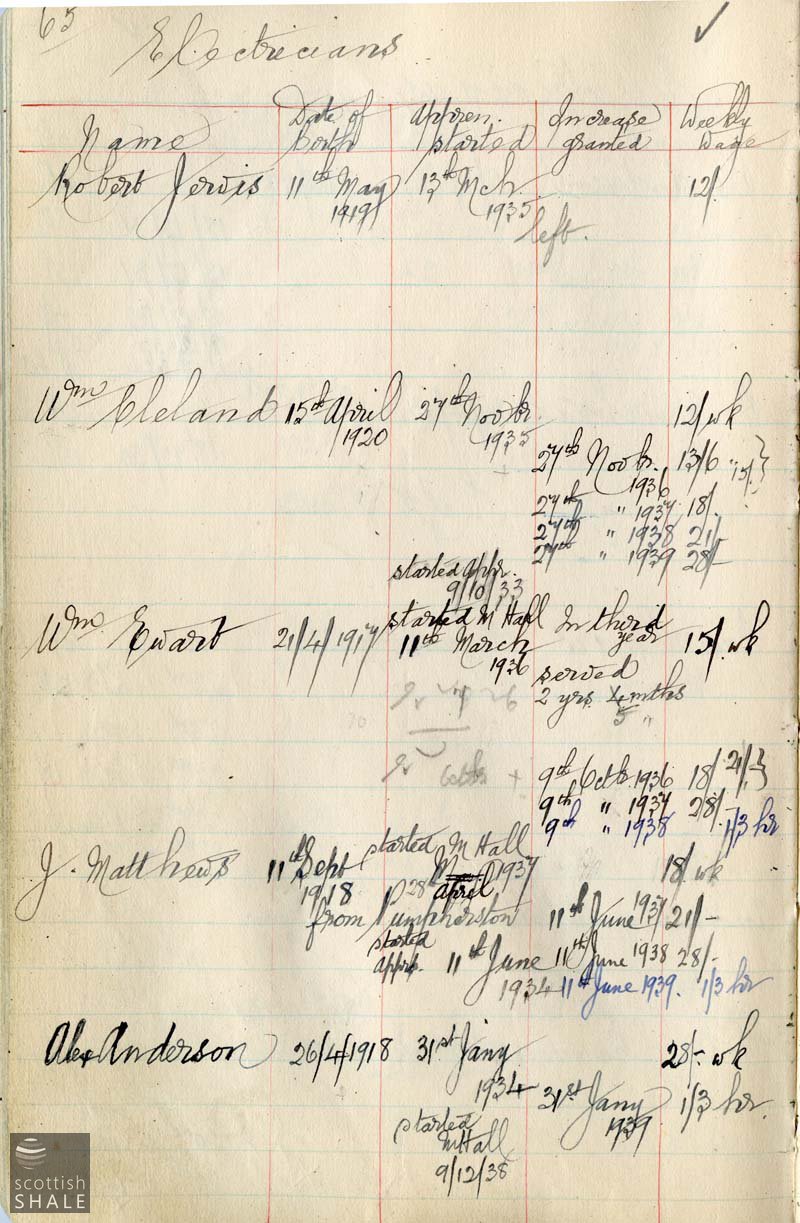 65
Electricians
Name Date of Birth Appren. started Increase granted Weekly Wage
Robert Jervis 11th May 1919 13th Mch. 1935 12/.
left.
Wm Cleland 15th April 1920 27th Novbr. 1935 12/ wk
27th Novbr. 1936 13/6 "15/. }
27th " 1937 18/.
27th " 1938 21/-
27th " 1939 28/-
started Appr. 9/10/33
Wm Ewart 21/4/1917 started M Hall 11th March 1936 In third year 15/. wk
served
2 yrs. 4 mths
5 "
9th Octbr 1936 18/ 21/- }
9th " 1937 28/.
9th " 1938 1/3 hr
J. Matthews 11th Sept 1918 started M Hall 28th April 1937 18/ wk
from Pumpherston 11th June 1937 21/-
started Apprt. 11th June 1934 11th June 1938 28/-
11th June 1939. 1/3 hr
Alex Anderson 26/4/1918 31st Jany 1934 28/- wk
31st Jany 1939 1/3 hr.
started
M Hall
9/12/38
scottish
SHALE